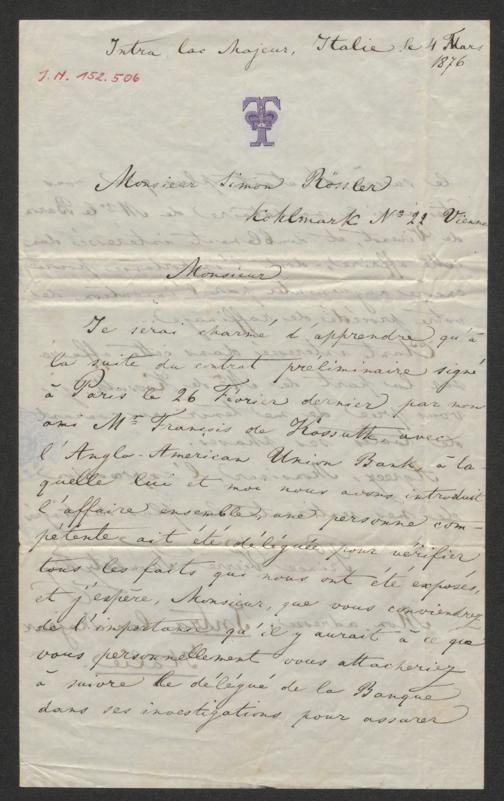 Intra lac Majeur, Italie le 4 Mars
1876
J.N. 152.506
T
Monsieur Simon Rössler
Kohlmark No 22 Vienne
Monsieur
Je serai charmé d'apprendre qu'à
la suite du contrat preliminaire signé
à Paris le 26 Février dernier par mon
ami Mr François de Kossuth avec
l'Anglo-American Union Bank, à la-
quelle lui et moi nous avons introduit
l'affaire ensemble, une personne com-
pétente ait été déléguée pour vérifier
tous les faits qui nous ont été exposés,
et j'espère, Monsieur, que vous conviendrez
de l'importance qu'il y aurait à ce que
vous personnellement vous attacheriez
à suivre le délégué de la Banque
dans ses investigations pour assurer